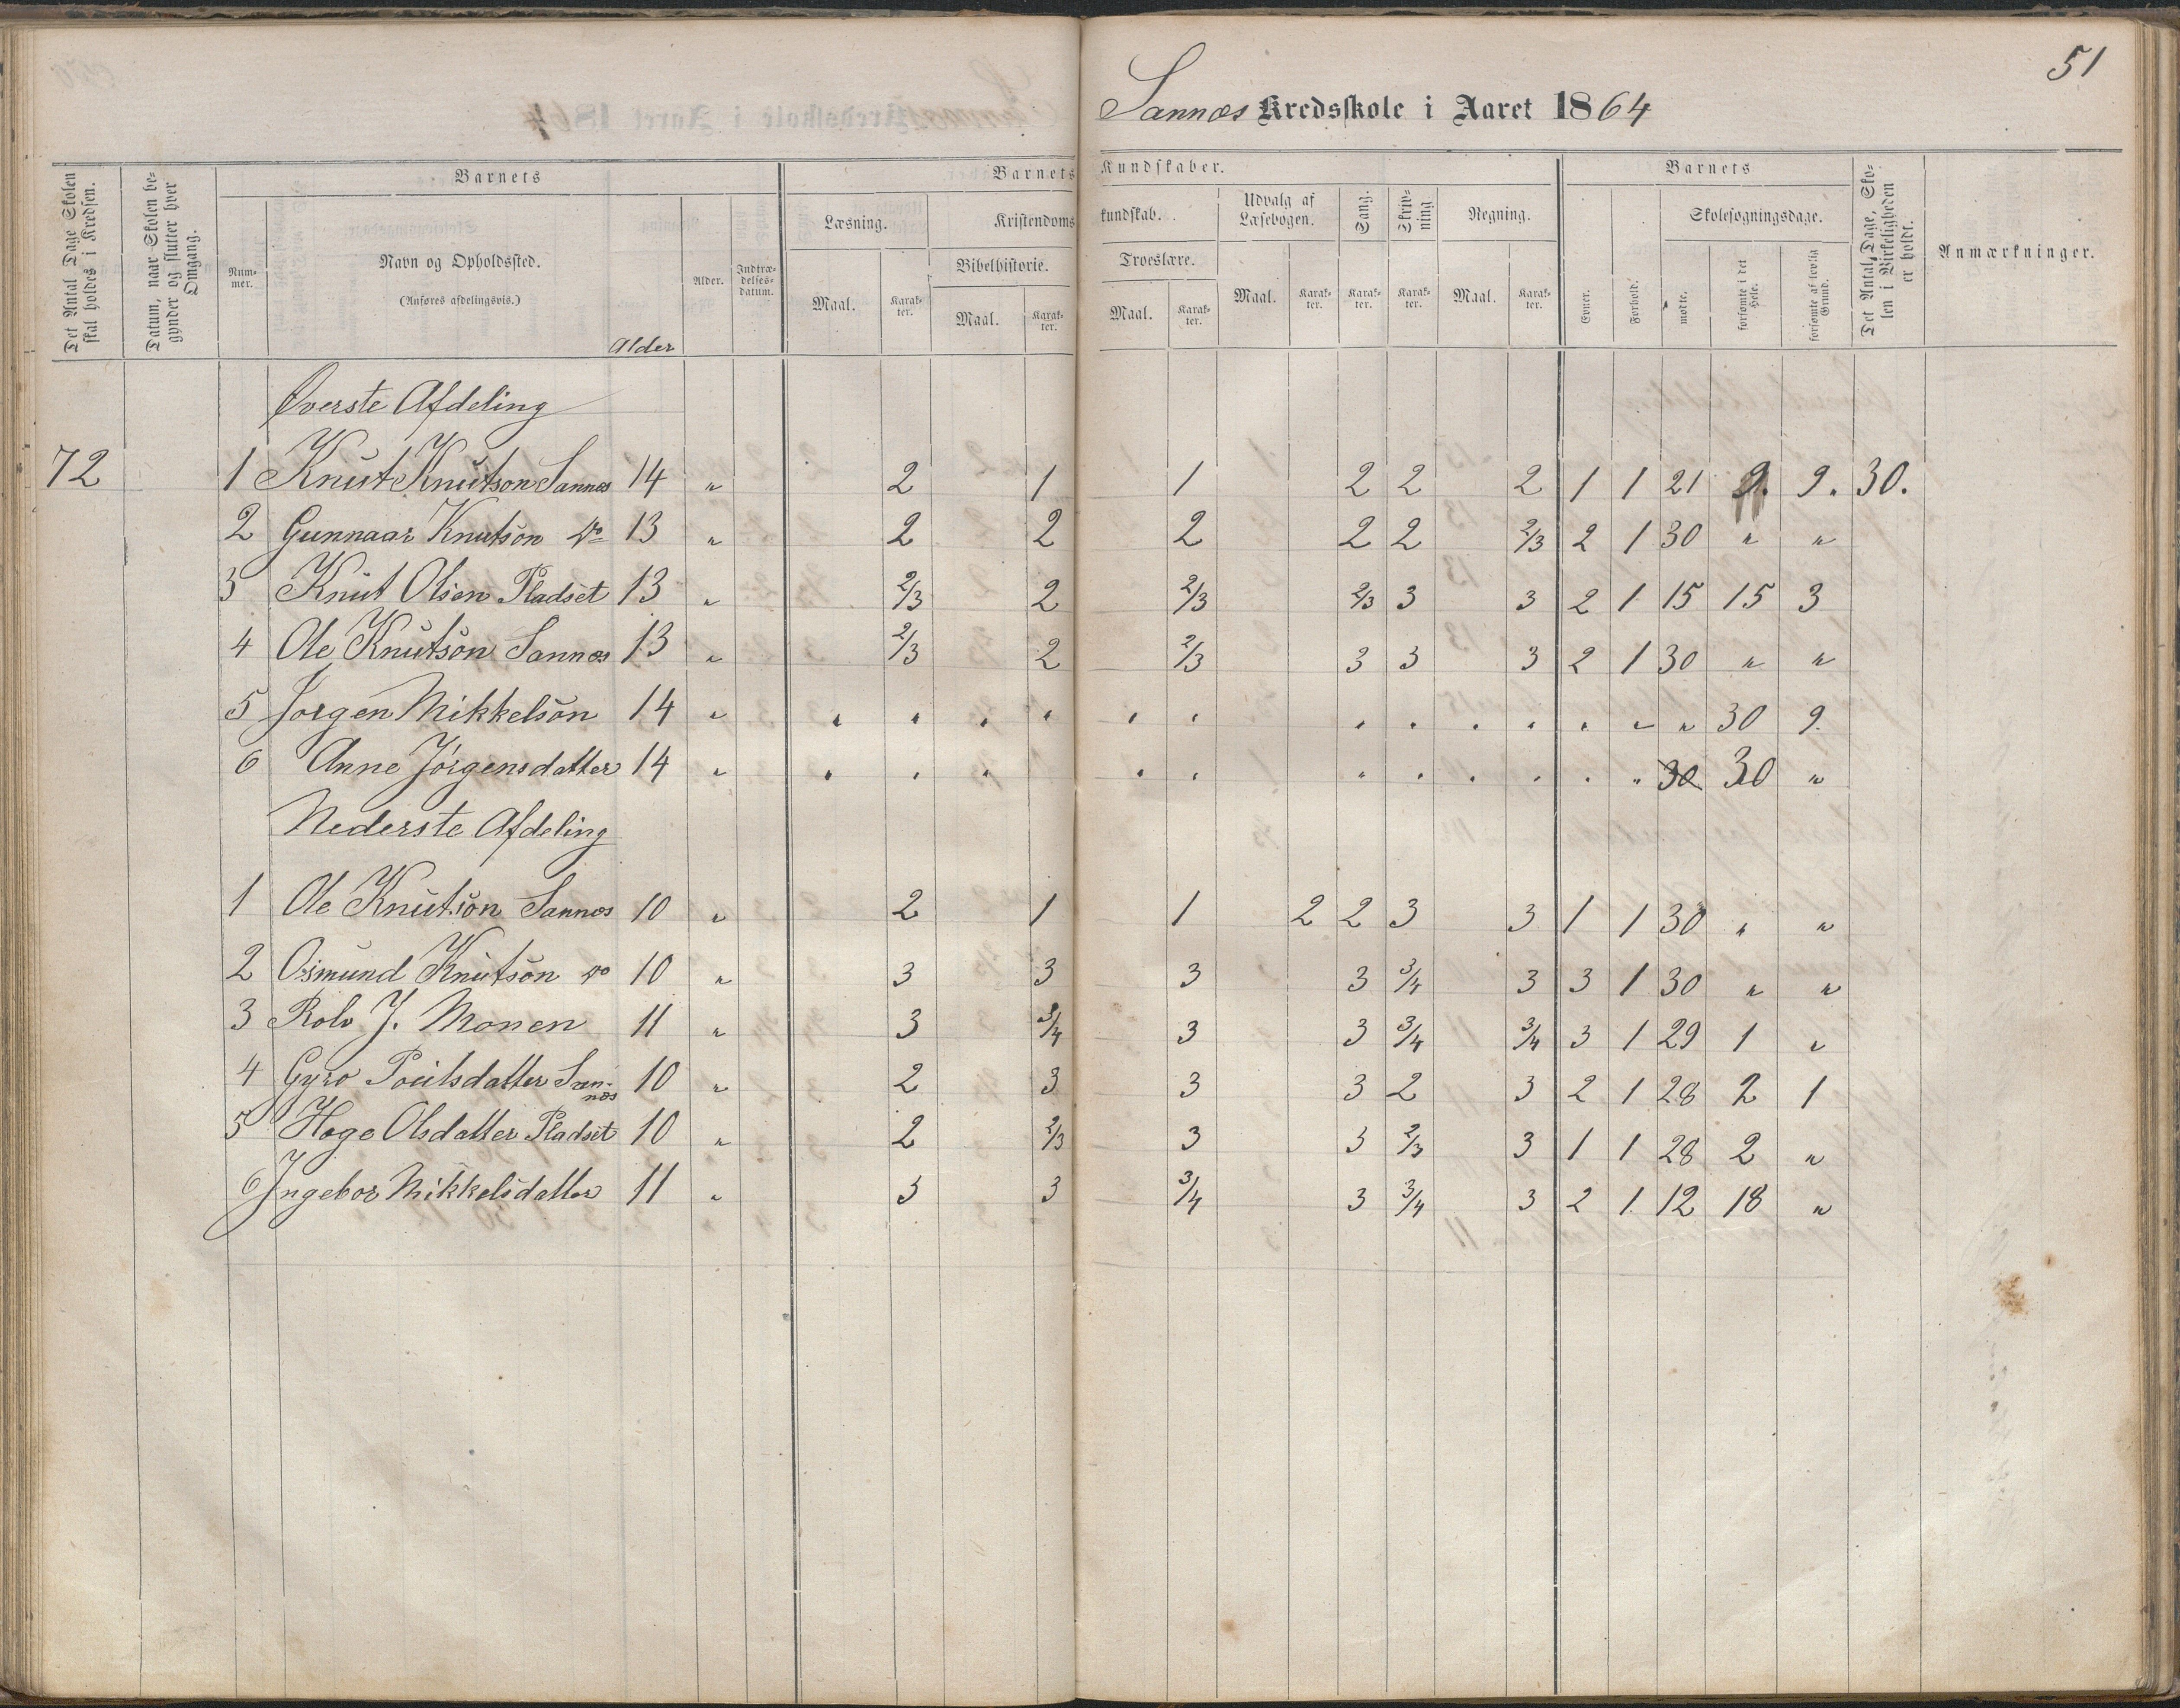 51
Sannæs Kredsskole i Aaret 1864
Det Antal Dage Skolen skal holdes i Kredsen.
Datum, naar Skolen begynder og slutter hver Omgang.
Barnets
Num-mer.
Navn og Opholdssted.
(Anføres afdelingsvis.)
Alder
Alder.
Indtræ-delses-datum.
Barnets Kundskaber.
Læsning.
Maal.
Karak-ter.
Kristendoms kundskab.
Bibelhistorie.
Maal.
Karak-ter.
Troeslære.
Maal.
Karak-ter.
Udvalg af Læsebogen.
Maal.
Karak-ter.
Sang.
Karak-ter.
Skriv-ning
Karak-ter.
Regning.
Maal.
Karak-ter.
Barnets
Evner.
Forhold.
Skolesøgningsdage.
mødte.
forsømte i det Hele.
forsømte af lovlig Grund.
Det Antal Dage, Sko-len i Virkeligheden er holdt.
Anmærkninger.
Øverste Afdeling
72 1 Knut Knutson Sannæs 14 " 2 1 1 2 2 2 1 1 21 9. 9. 30.
2 Gunnaar Knutson do 13 " 2 2 2 2 2 2/3 2 1 30 " "
3 Knut Olsen Pladset 13 " 2/3 2 2/3 2/3 3 3 2 1 15 15 3
4 Ole Knutson Sannæs 13 " 2/3 2 2/3 3 3 3 2 1 30 " "
5 Jørgen Mikkelson 14 " " " " " " " " " " " " " " 30 9.
6 Anne Jörgensdatter 14 " " " " " " " " " " " " 30 30 "
Nederste Afdeling
1 Ole Knutson Sannæs 10 " 2 1 1 2 2 3 3 1 1 30 " "
2 Osmund Knutson do 10 " 3 3 3 3 3/4 3 3 1 30 " "
3 Rolv J. Monen 11 " 3 3/4 3 3 3/4 3/4 3 1 29 1 "
4 Gyro Poulsdatter San-næs 10 " 2 3 3 3 2 3 2 1 28 2 1
5 Hoge Olsdatter Pladset 10 " 2 2/3 3 3 2/3 3 1 1 28 2 "
6 Ingebor Mikkelsdatter 11 " 3 3 3/4 3 3/4 3 2 1 12 18 "